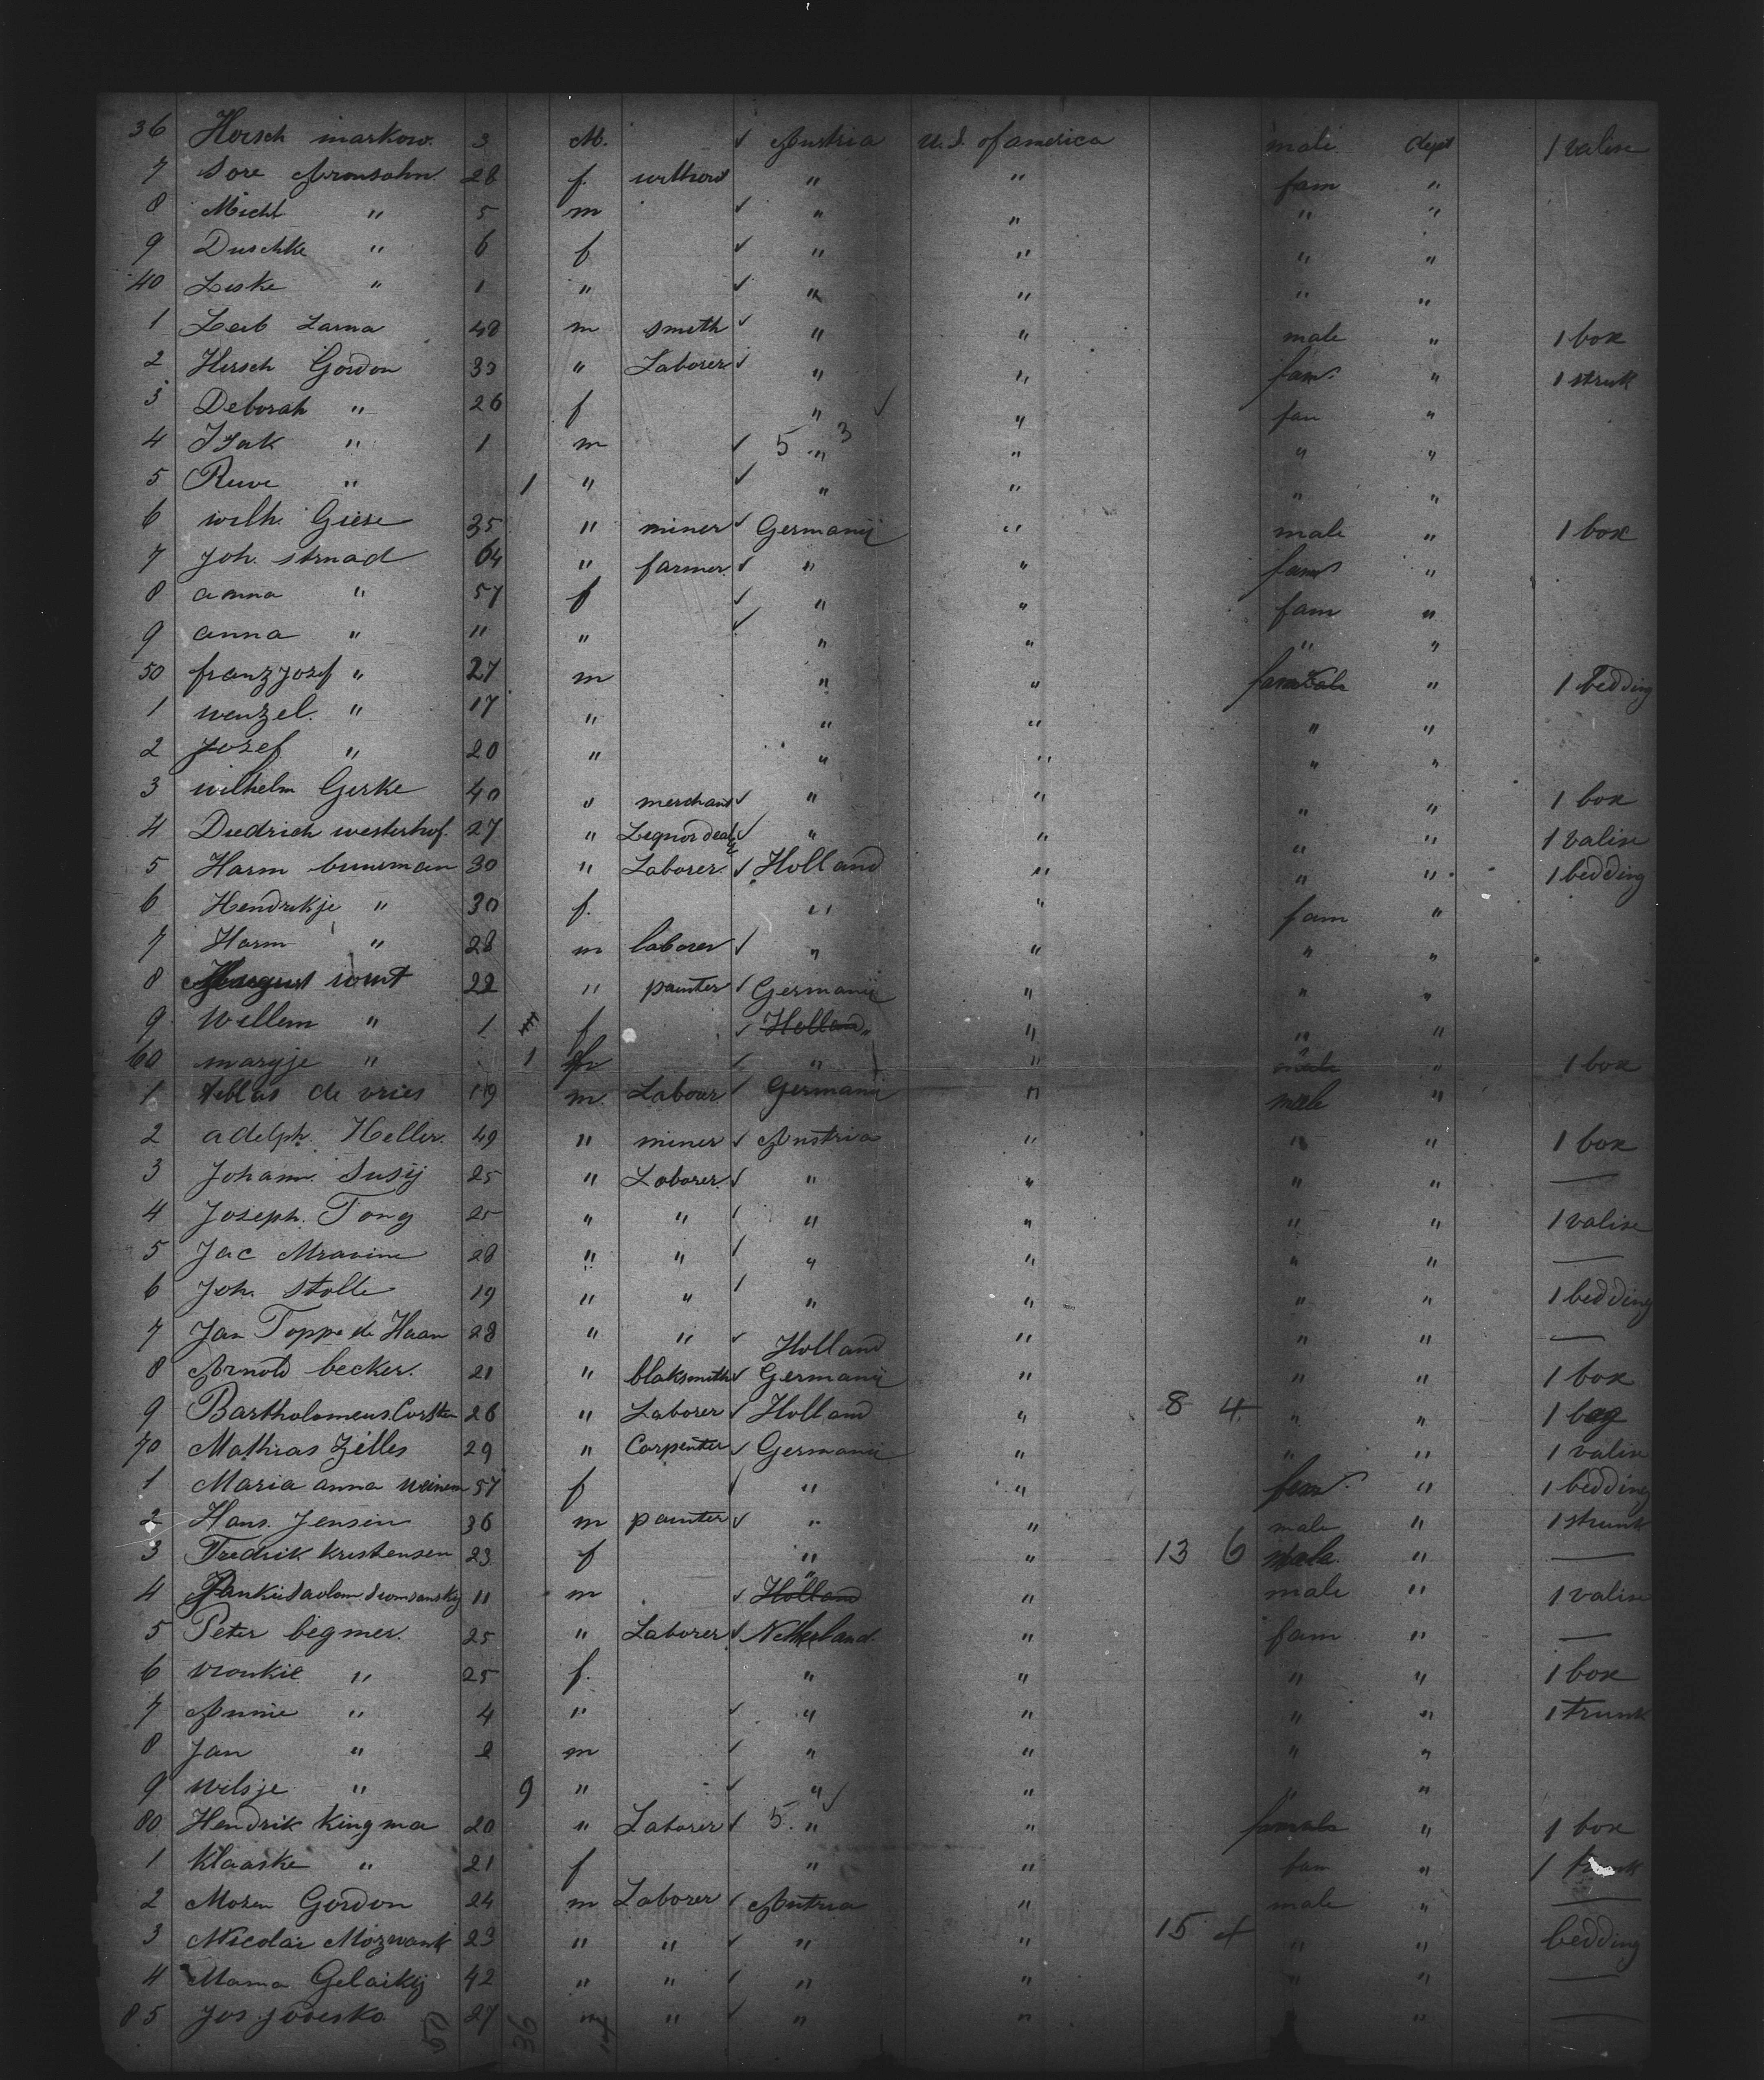 36 Hersch markow. 3 M. ✓ Austria U.S. of america male dept 1 valise
7 Sore Aronsohn 28 f. without " " fam "
8 Michl " 5 m ✓ " " " "
9 Duschke " 6 f ✓ " " " "
40 Leske " 1 " ✓ " " " "
1 Leib Larna 48 m smeth ✓ " " male " 1 box
2 Hersch Gordon 30 " Laborer ✓ " " fam. " 1 strunk
3 Deborah " 26 f " ✓ " fam "
4 Isak " 1 m ✓ 5 " 3 " " "
5 Ruve " 1 " ✓ " " " "
6 wilh. Giese 35 " miner ✓ Germanij " male " 1 box
7 Joh. strnad 64 " farmer ✓ " " fam "
8 anna " 57 f ✓ " " fam "
9 anna " 11 " ✓ " " " "
50 franz Josef " 27 m " " " 1 bedding
1 wenzel. " 17 " " " " "
2 Jozef " 20 " " " " "
3 wilhelm Gerke 40 " merchant ✓ " " " " 1 box
4 Diedrich westerhof. 27 " Lequor dealer ✓ " " " " 1 valise
5 Harm buurman 30 " Laborer ✓ Holland " " " 1 bedding
6 Hendrikje " 30 f. " " fam "
7 Harm " 28 m laborer ✓ " " " "
8 August 22 " painter ✓ Germanij " " "
9 Willem " 1 f ✓ Holland " " " "
60 margje " 1 ✓ " " male " 1 box
1 de vries 19 m. Labour ✓ Germanij " male "
2 adolph. Heller. 49 " miner ✓ Austria " " " 1 box
3 Johann Susij 25 " Laborer ✓ " " " " —
4 Joseph. Tong 25 " " ✓ " " " " 1 valise
5 Jac Mravine 28 " " ✓ " " " " —
6 Joh. Stolle 19 " " ✓ " " " " 1 bedding
7 Jan Toppe de Haan 28 " " ✓ Holland " " " —
8 Arnold becker. 21 " blaksmith ✓ Germanij " " " 1 box
9 Bartholomeus. Corsten 26 " Laborer ✓ Holland " 8 4 " " 1 bag
70 Mathias Zilles 29 " Carpenter ✓ Germanij " " " 1 valise
1 Maria anna 57 f ✓ " " fam. " 1 bedding
2 Hans. Jensen 36 m painter ✓ " " male " 1 strunk
3 Fredrik kristensen 23 f " " 13 6 male. " —
4 11 m ✓ Holland " " male " 1 valise
5 Peter begmer. 25 " Laborer ✓ Netherland. " fam " —
6 vroukie " 25 f. " " " " 1 box
7 Annie " 4 " ✓ " " " " 1 trunk
8 Jan " 2 m ✓ " " " "
9 wilsje " 9 " ✓ " ✓ " " "
80 Hendrik kingma 20 " Laborer ✓ 5. " " female " 1 box
1 klaaske " 21 f " " fam " 1
2 Mozen Gordon 24 m Laborer ✓ Autria " male " —
3 Nicolai Mozwank 23 " " ✓ " " 15 4 " " bedding
4 Mama Gelaikij 42 " " ✓ " " " " —
85 Jos. jodesko 27 m " ✓ " " " —
50 36